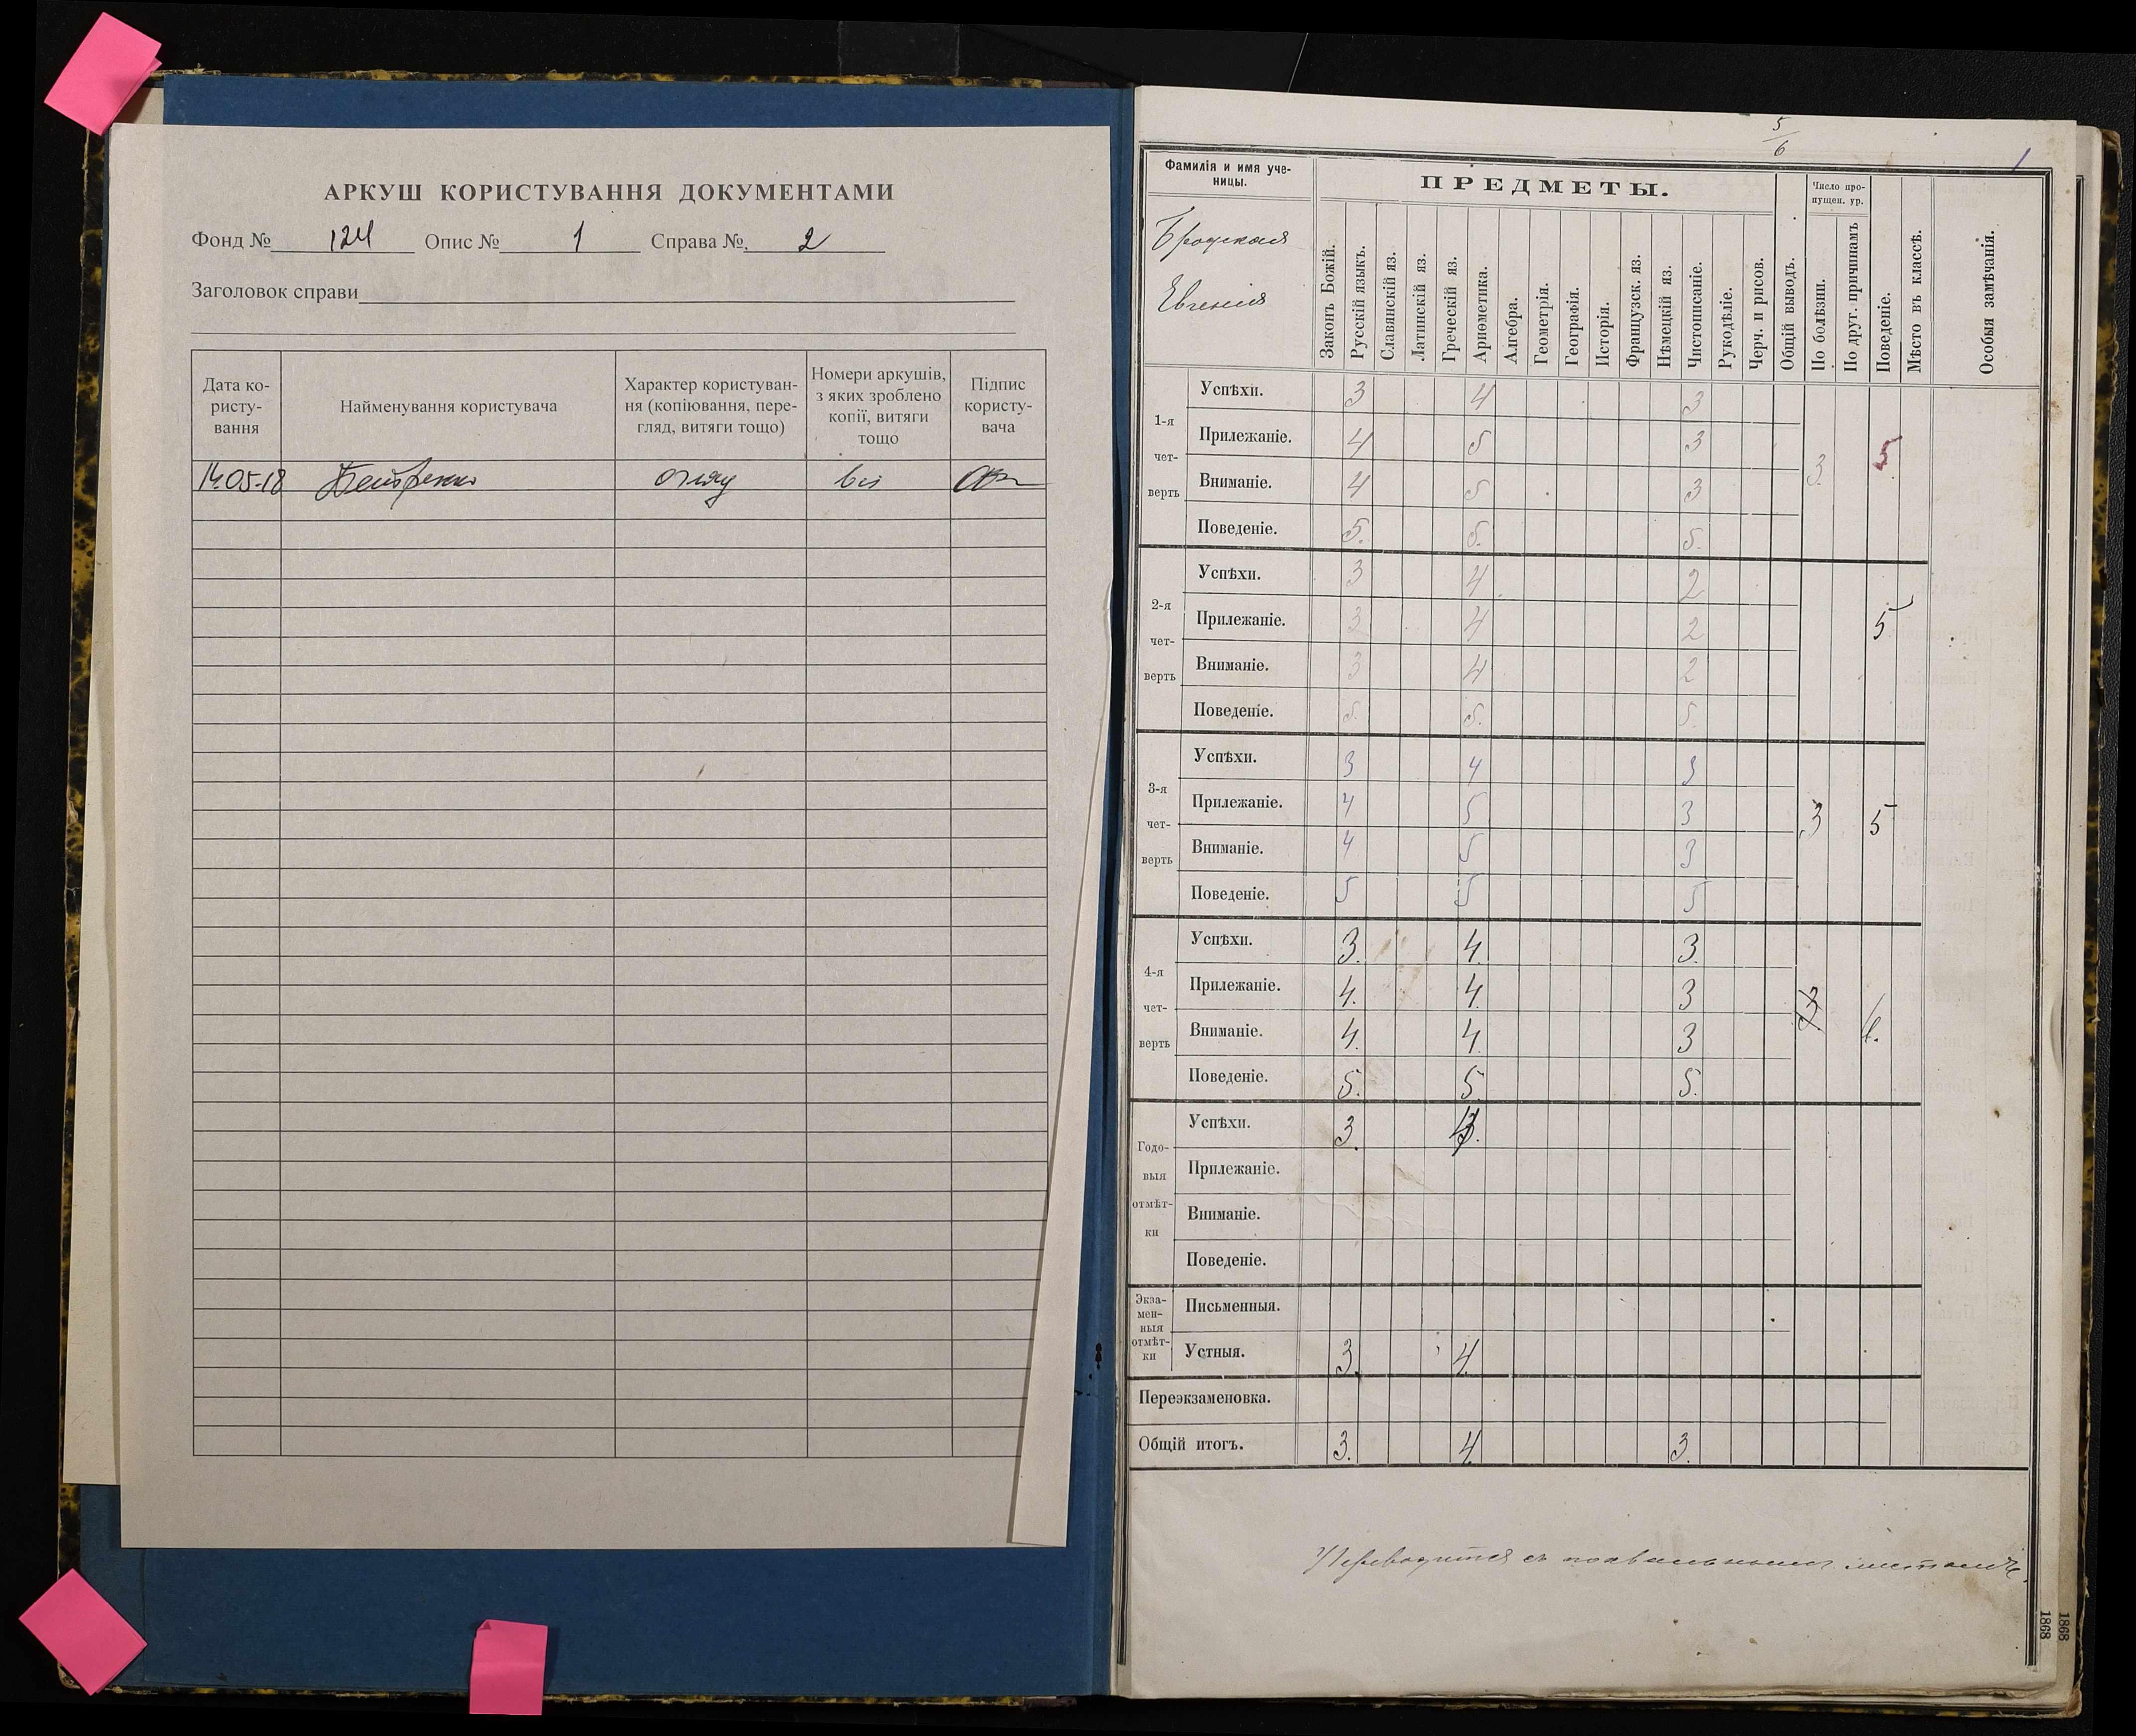 АРКУШ КОРИСТУВАННЯ ДОКУМЕНТАМИ
Фонд № 124 Опис № 1 Справа № 2
Заголовок справи
Дата ко-
ристу-
вання
Найменування користувача
Характер користуван-
ня (копіювання, пере-
гляд, витяги тощо)
Номери аркушів,
з яких зроблено
копії, витяги
тощо
Підпис
користу-
вача
14.05.18 огляд всі
5/6
1
Фамилія и имя уче-
ницы.
Бродская
Евгенія
ПРЕДМЕТЫ.
Законъ Божій.
Русскій языкъ.
Славянскій яз.
Латинскій яз.
Греческій яз.
Ариѳметика.
Алгебра.
Геометрія.
Географія.
Исторія.
Французск. яз.
Нѣмецкій яз.
Чистописаніе.
Рукодѣліе.
Черч. и рисов.
Общій выводъ.
Число про-
пущен. ур.
По болѣзни.
По друг. причинамъ
Поведеніе.
Мѣсто въ классѣ.
Особыя замѣчанія.
1-я чет- верть
Успѣхи. 3 4 3
Прилежаніе. 4 5 3
Вниманіе. 4 5 3
Поведеніе. 5. 5. 5.
3. 5.
2-я чет- верть
Успѣхи. 3 4 2
Прилежаніе. 3 4 2
Вниманіе. 3 4 2
Поведеніе. 5. 5. 5.
5
3-я чет- верть
Успѣхи. 3 4 3
Прилежаніе. 4 5 3
Вниманіе. 4 5 3
Поведеніе. 5 5 5
3 5
4-я чет- верть
Успѣхи. 3. 4. 3.
Прилежаніе. 4. 4. 3
Вниманіе. 4. 4. 3
Поведеніе. 5. 5. 5.
3
Годо- выя отмѣт- ки
Успѣхи. 3.
Прилежаніе.
Вниманіе.
Поведеніе.
Экза- мен- ныя отмѣт- ки
Письменныя.
Устныя. 3. 4.
Переэкзаменовка.
Общій итогъ. 3. 4. 3.
Переводится съ похвальнымъ листомъ.
1868
1868